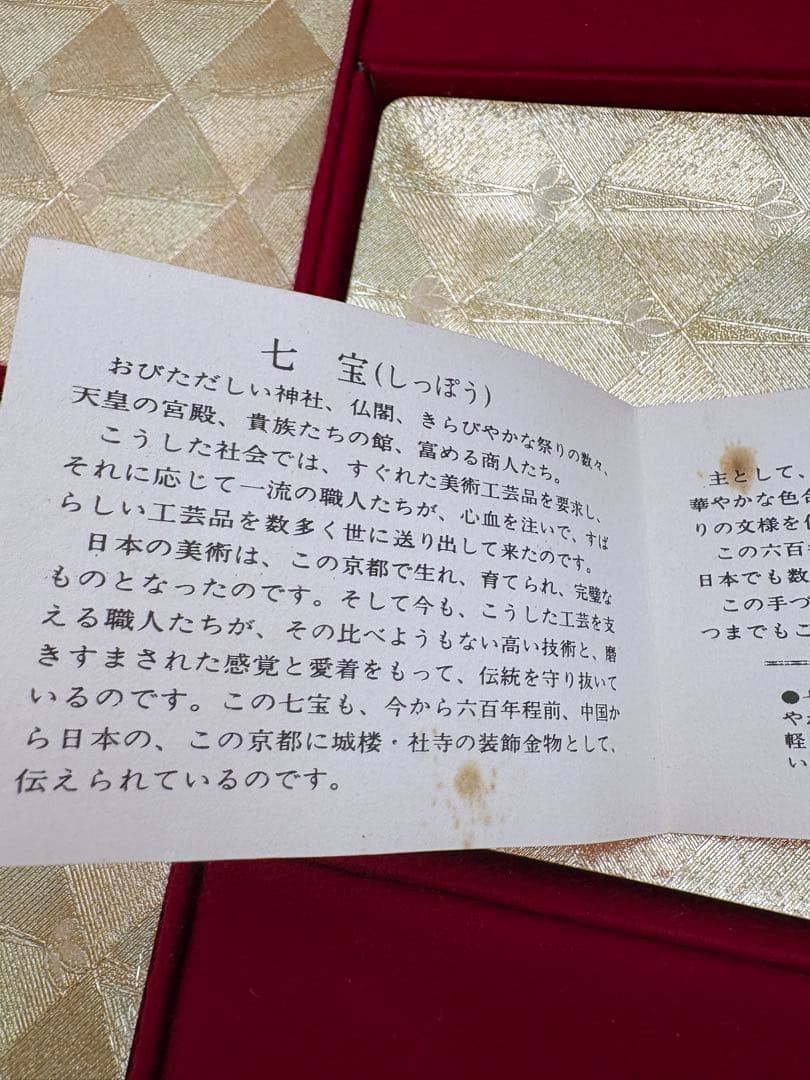 七 宝(しっぽう)
おびただしい神社、仏閣、きらびやかな祭りの数々、
天皇の宮殿、貴族たちの館、富める商人たち。
こうした社会では、すぐれた美術工芸品を要求し、
それに応じて一流の職人たちが、心血を注いで、すば
らしい工芸品を数多く世に送り出して来たのです。
日本の美術は、この京都で生れ、育てられ、完璧な
ものとなったのです。そして今も、こうした工芸を支
える職人たちが、その比べようもない高い技術と、磨
きすまされた感覚と愛着をもって、伝統を守り抜いて
いるのです。この七宝も、今から六百年程前、中国か
ら日本の、この京都に城楼・社寺の装飾金物として、
伝えられているのです。
主として、
華やかな色
りの文様を
この六百
日本でも数
この手づ
つまでもこ
●
や
軽
い